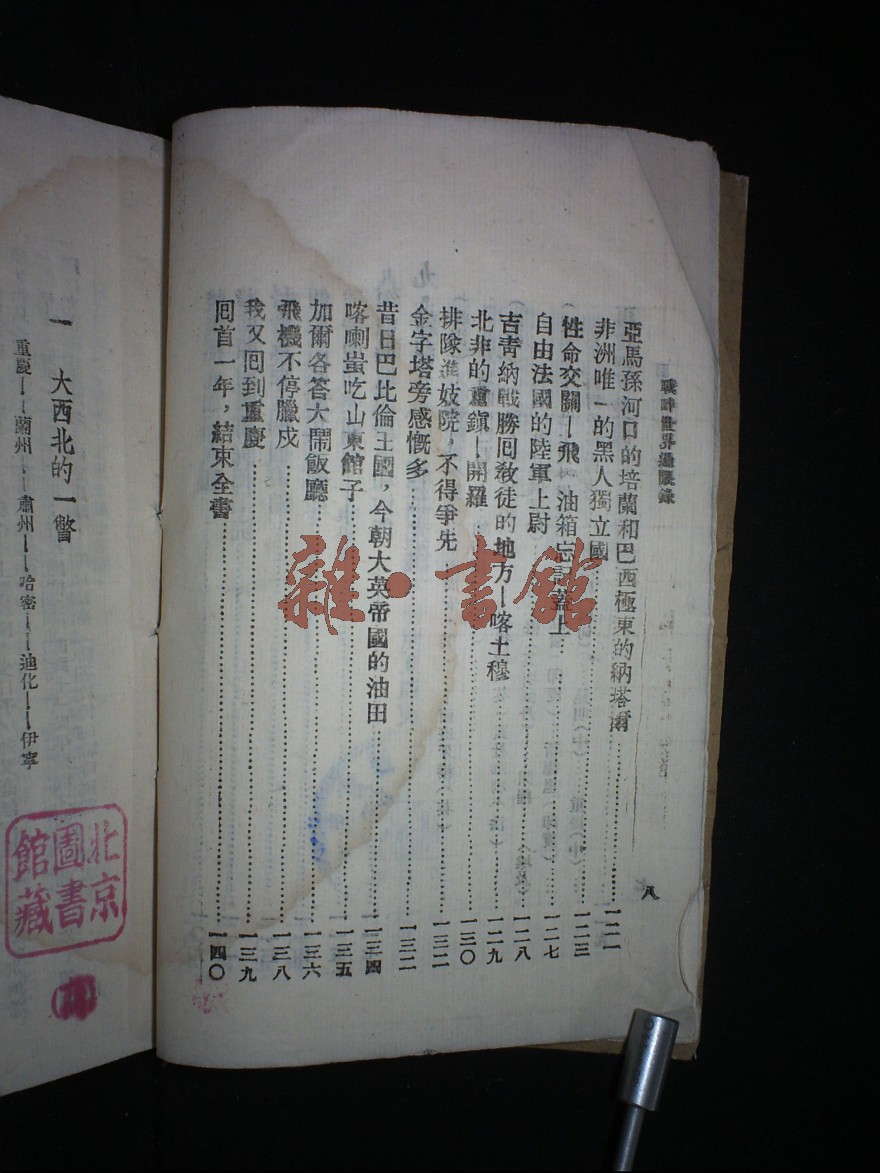 戰時世界錄
八
亞馬孫河口的培蘭和巴西極東的納塔爾……一二一
非洲唯一的黑人獨立國……一二三
性命交關—飛 油箱忘記蓋上……一二七
自由法國的陸軍上尉……一二八
吉青納戰勝囘教徒的地方—喀土穆……一二九
北非的重鎮—開羅……一三〇
排隊進妓院，不得爭先……一三二
金字塔旁感慨多……一三二
昔日巴比倫王國，今朝大英帝國的油田……一三四
喀喇蚩吃山東館子……一三五
加爾各答大鬧飯廳……一三六
飛機不停臘戍……一三八
我又囘到重慶……一三九
囘首一年，結束全書……一四〇
雜·書館
一 大西北的一瞥
重慶——蘭州——肅州——哈密——迪化——伊寧
北京
圖書
館藏